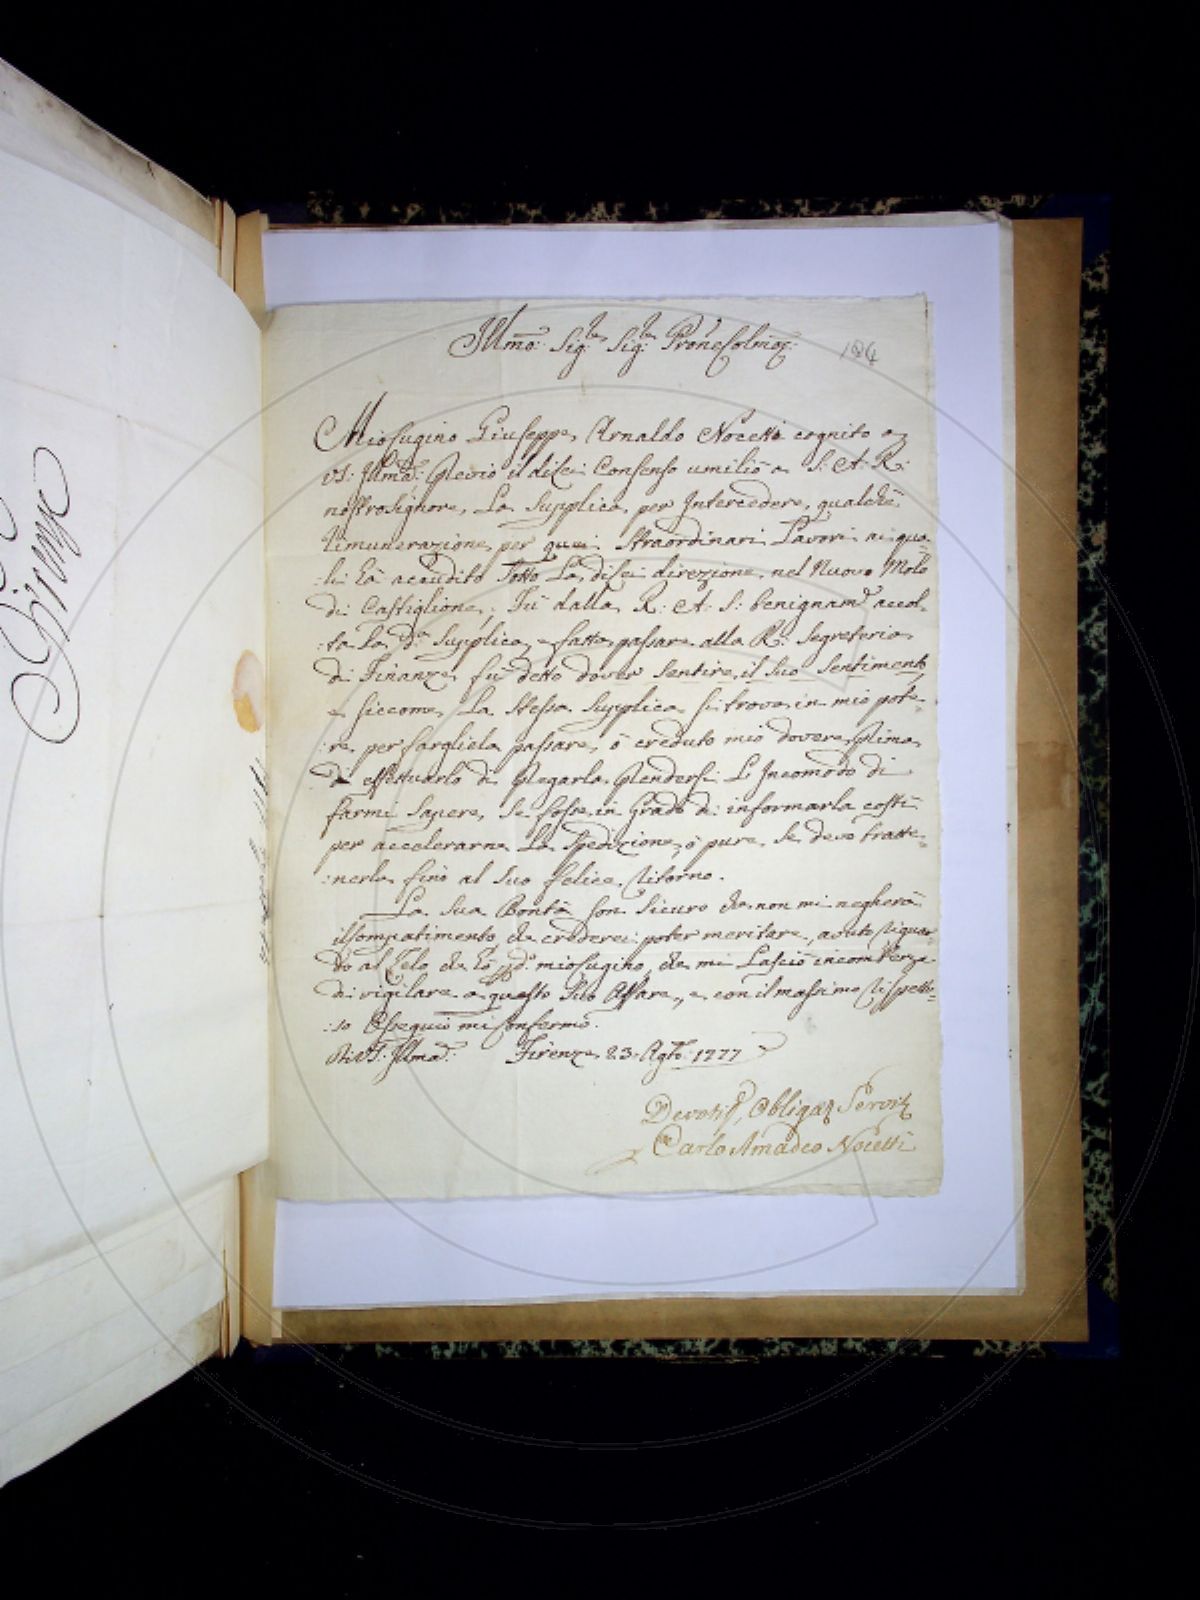 Firenze
Illmo: Sig:re Sig:re Prone Colmo:
184
Mio Cugino Giuseppe Arnaldo Nocetti cognito a
VS: Illma: previo il di lei Consenso umiliò a S: A: R:
nostro Signore, La Supplica per Intercedere, qualche
rimunerazione per quei Straordinari Lavori ai qua-
:li hà accudito Sotto La di lei direzione nel Nuovo Molo
di Castiglione; Fù dalla R: A: S: benignam.e accol-
:ta La d.a Supplica, e fatta passare alla R: Segreteria
di Finanze fù detto dover sentire, il suo sentimento,
e siccome, La stessa Supplica si trova in mio pote-
:re per fargliela passare, ò creduto mio dovere, prima
di effettuarlo di pregarla prendersi L'Incomodo di
farmi sapere, se fosse in Grado di informarla costì
per accelerarne La Spedizione, ò pure se devo tratte-
:nerla fino al suo felice ritorno.
La sua Bontà son sicuro che non mi negherà
il compatimento, che crederei poter meritare, avuto riguar-
do al Zelo che hò p d.o mio Cugino, che mi Lasciò incombenza
di vigilare a questo suo Affare, e con il massimo rispetto-
:so Ossequio mi confermo.
Di VS: Illma: Firenze 23. Agto: 1777
Devotis: Obligat: Servit:
Carlo Amadeo Nocetti